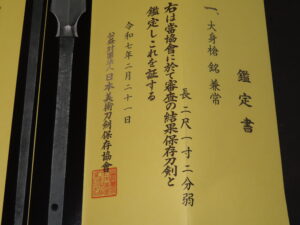 鑑定書
一、大身槍 銘 兼常
長 二尺一寸二分弱
右は當協會に於て審査の結果保存刀剣と
鑑定しこれを証する
令和七年二月二十一日
公益財団法人日本美術刀剣保存協會